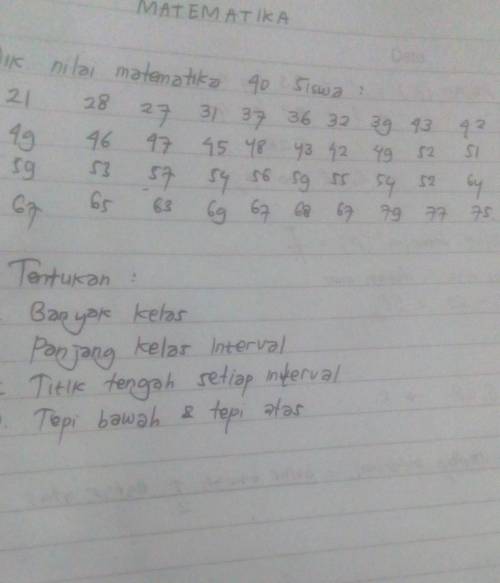 MATEMATIKA
nilai matematika 40 siswa :
21 28 27 31 37 36 32 39 43 42
49 46 47 45 48 43 42 49 52 51
59 53 57 54 56 59 55 54 52 64
67 65 63 69 67 68 67 79 77 75
Tentukan :
Banyak kelas
Panjang kelas Interval
Titik tengah setiap interval
Tepi bawah & tepi atas